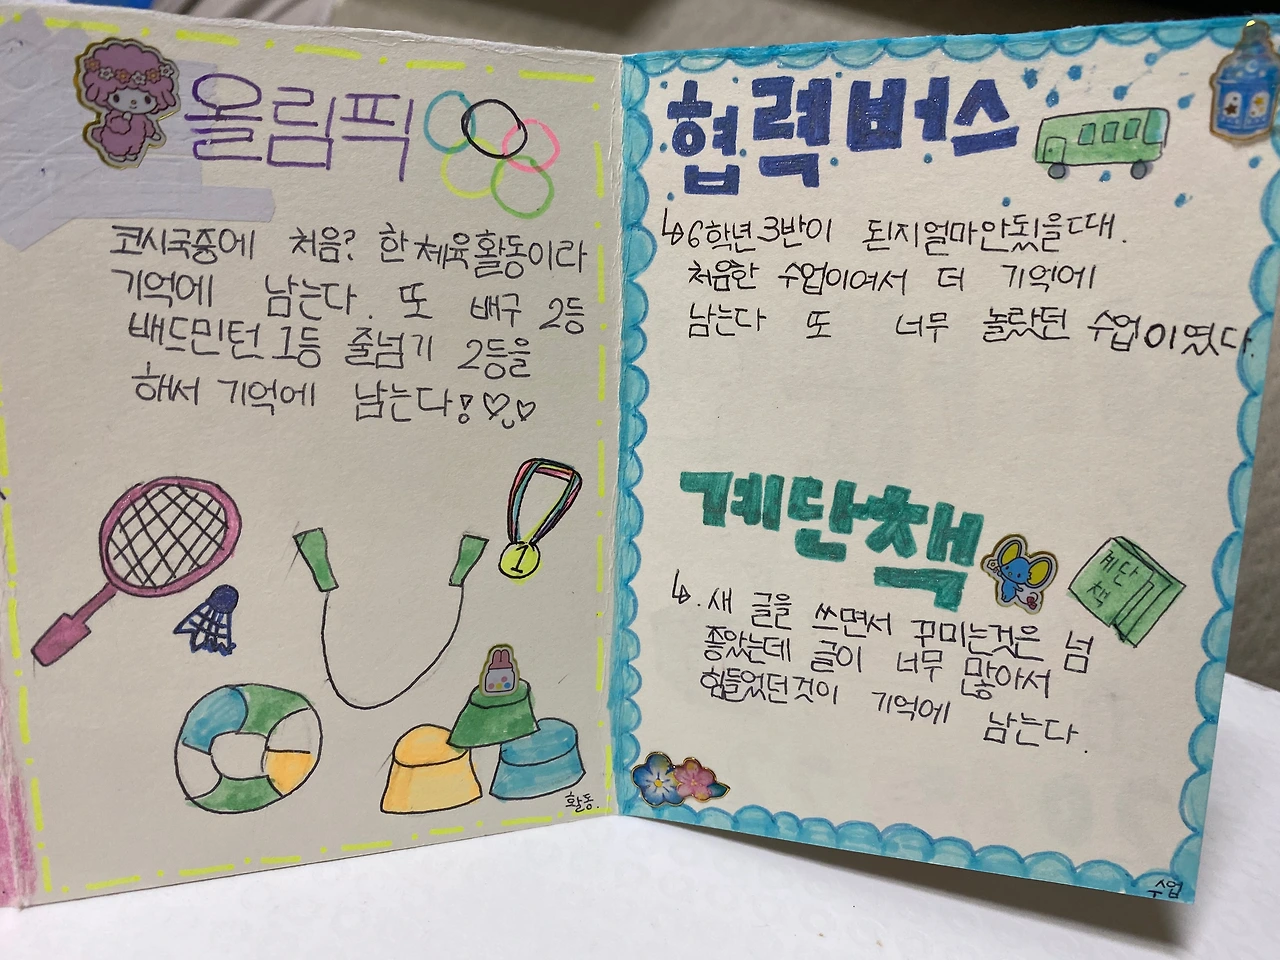 올림픽
코시국중에 처음? 한 체육활동이라
기억에 남는다. 또 배구 2등
배드민턴 1등 줄넘기 2등을
해서 기억에 남는다!
1
활동.
협력버스
↳ 6학년 3반이 된지얼마안됬을때.
처음한 수업이여서 더 기억에
남는다 또 너무 놀랐던 수업이였다.
계단책
계단
책
↳. 새 글을 쓰면서 꾸미는것은 넘
좋았는데 글이 너무 많아서
힘들었던것이 기억에 남는다.
수업